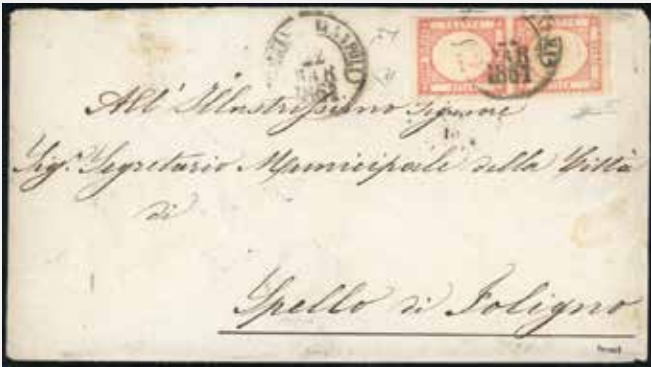 NAPOLI
22
MAR
1861
MAR
1861
All' Illustrissimo Signore
Sigr. Segretario Municipale della Città
di
Spello di Foligno